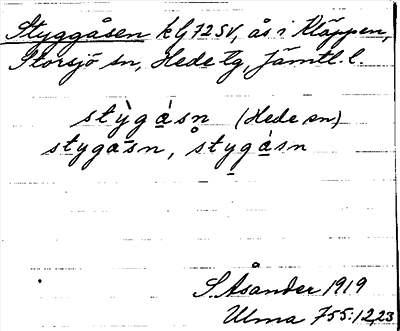 Styggåsen kG72SV, ås i Kläppen,
Storsjö sn, Hede tg, Jämtl. l.
stỳgásn (Hede sn)
stygasn, stygásn
S. Åsander 1919
Ulma 755:12,23